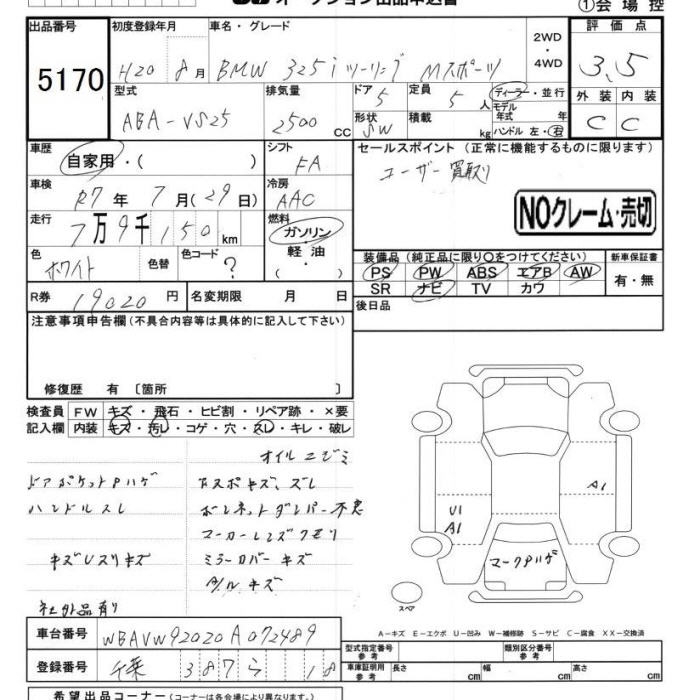 オークション出品申込書
①会場控
出品番号
5170
初度登録年月
H20 8月
車名・グレード
BMW 325i ツーリング Mスポーツ
2WD
・
4WD
評価点
3.5
外装 内装
C C
型式
ABA-VS25
排気量
2500 cc
ドア
5
形状
SW
定員
5人
積載
kg
ディーラー・並行
モデル
年式 年
ハンドル 左・右
車歴
自家用・( )
シフト
FA
セールスポイント (正常に機能するものに限ります)
ユーザー買取り
NOクレーム・売切
車検
R7年 7月(29日)
冷房
AAC
走行
7万9千150km
燃料
ガソリン・
軽油・
( )
色
ホワイト
色替
色コード
?
装備品 (純正品に限り○をつけてください)
PS PW ABS エアB AW
SR ナビ TV カワ
新車保証書
有・無
R券 19020円
名変期限 月 日
後日品
注意事項申告欄(不具合内容等は具体的に記入して下さい)
修復歴 有 〔箇所 〕
検査員
記入欄
FW キズ・飛石・ヒビ割・リペア跡・×要
内装 キズ・汚レ・コゲ・穴・スレ・キレ・破レ
オイルニジミ
ドアポケットPハゲ
ハンドルスレ
ボンネットダンパー不良
コーカーレンズクモリ
ミラーカバーキズ
A/Wキズ
社外品有り
U1
A1
A1
マークPハゲ
スペア
A-キズ E-エクボ U-凹み W-補修跡 S-サビ C-腐食 XX-交換済
車台番号 WBAVW92020A072489
登録番号 千葉 387 ら 18
型式指定番号
類別区分番号
車庫証明用
参考
長さ cm 幅 cm 高さ cm
希望出品コーナー(コーナーは各会場により異なります。)